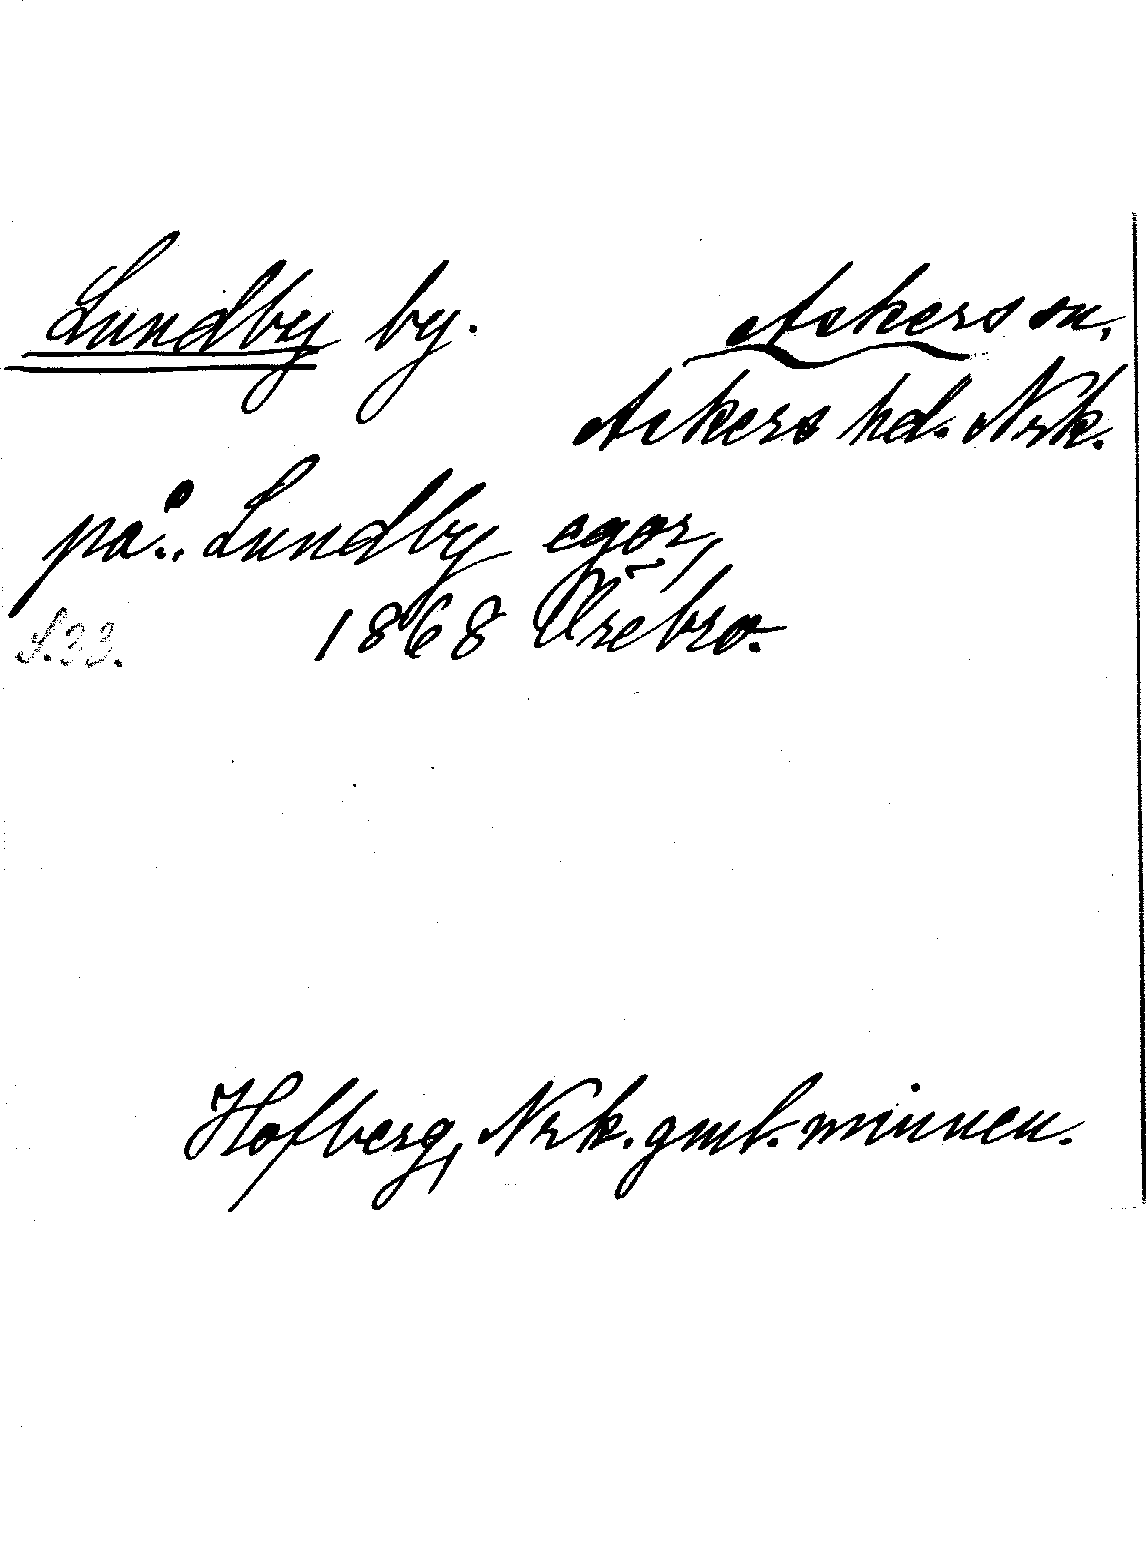 Lundby by. Askers sn.
Askers hd. Nrk.
på.. Lundby egor,
S.33. 1868 Örebro.
Hofberg, Nrk. gml. minnen.